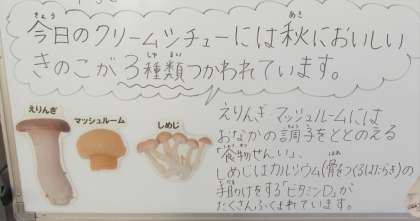 今日のクリームシチューには秋においしい
きのこが3種類つかわれています。
えりんぎ
マッシュルーム
しめじ
えりんぎ マッシュルームには
おなかの調子をととのえる
「食物せんい」、
しめじはカルシウム(骨をつくるはたらき)の
手助けをする「ビタミンD」が
たくさんふくまれています。